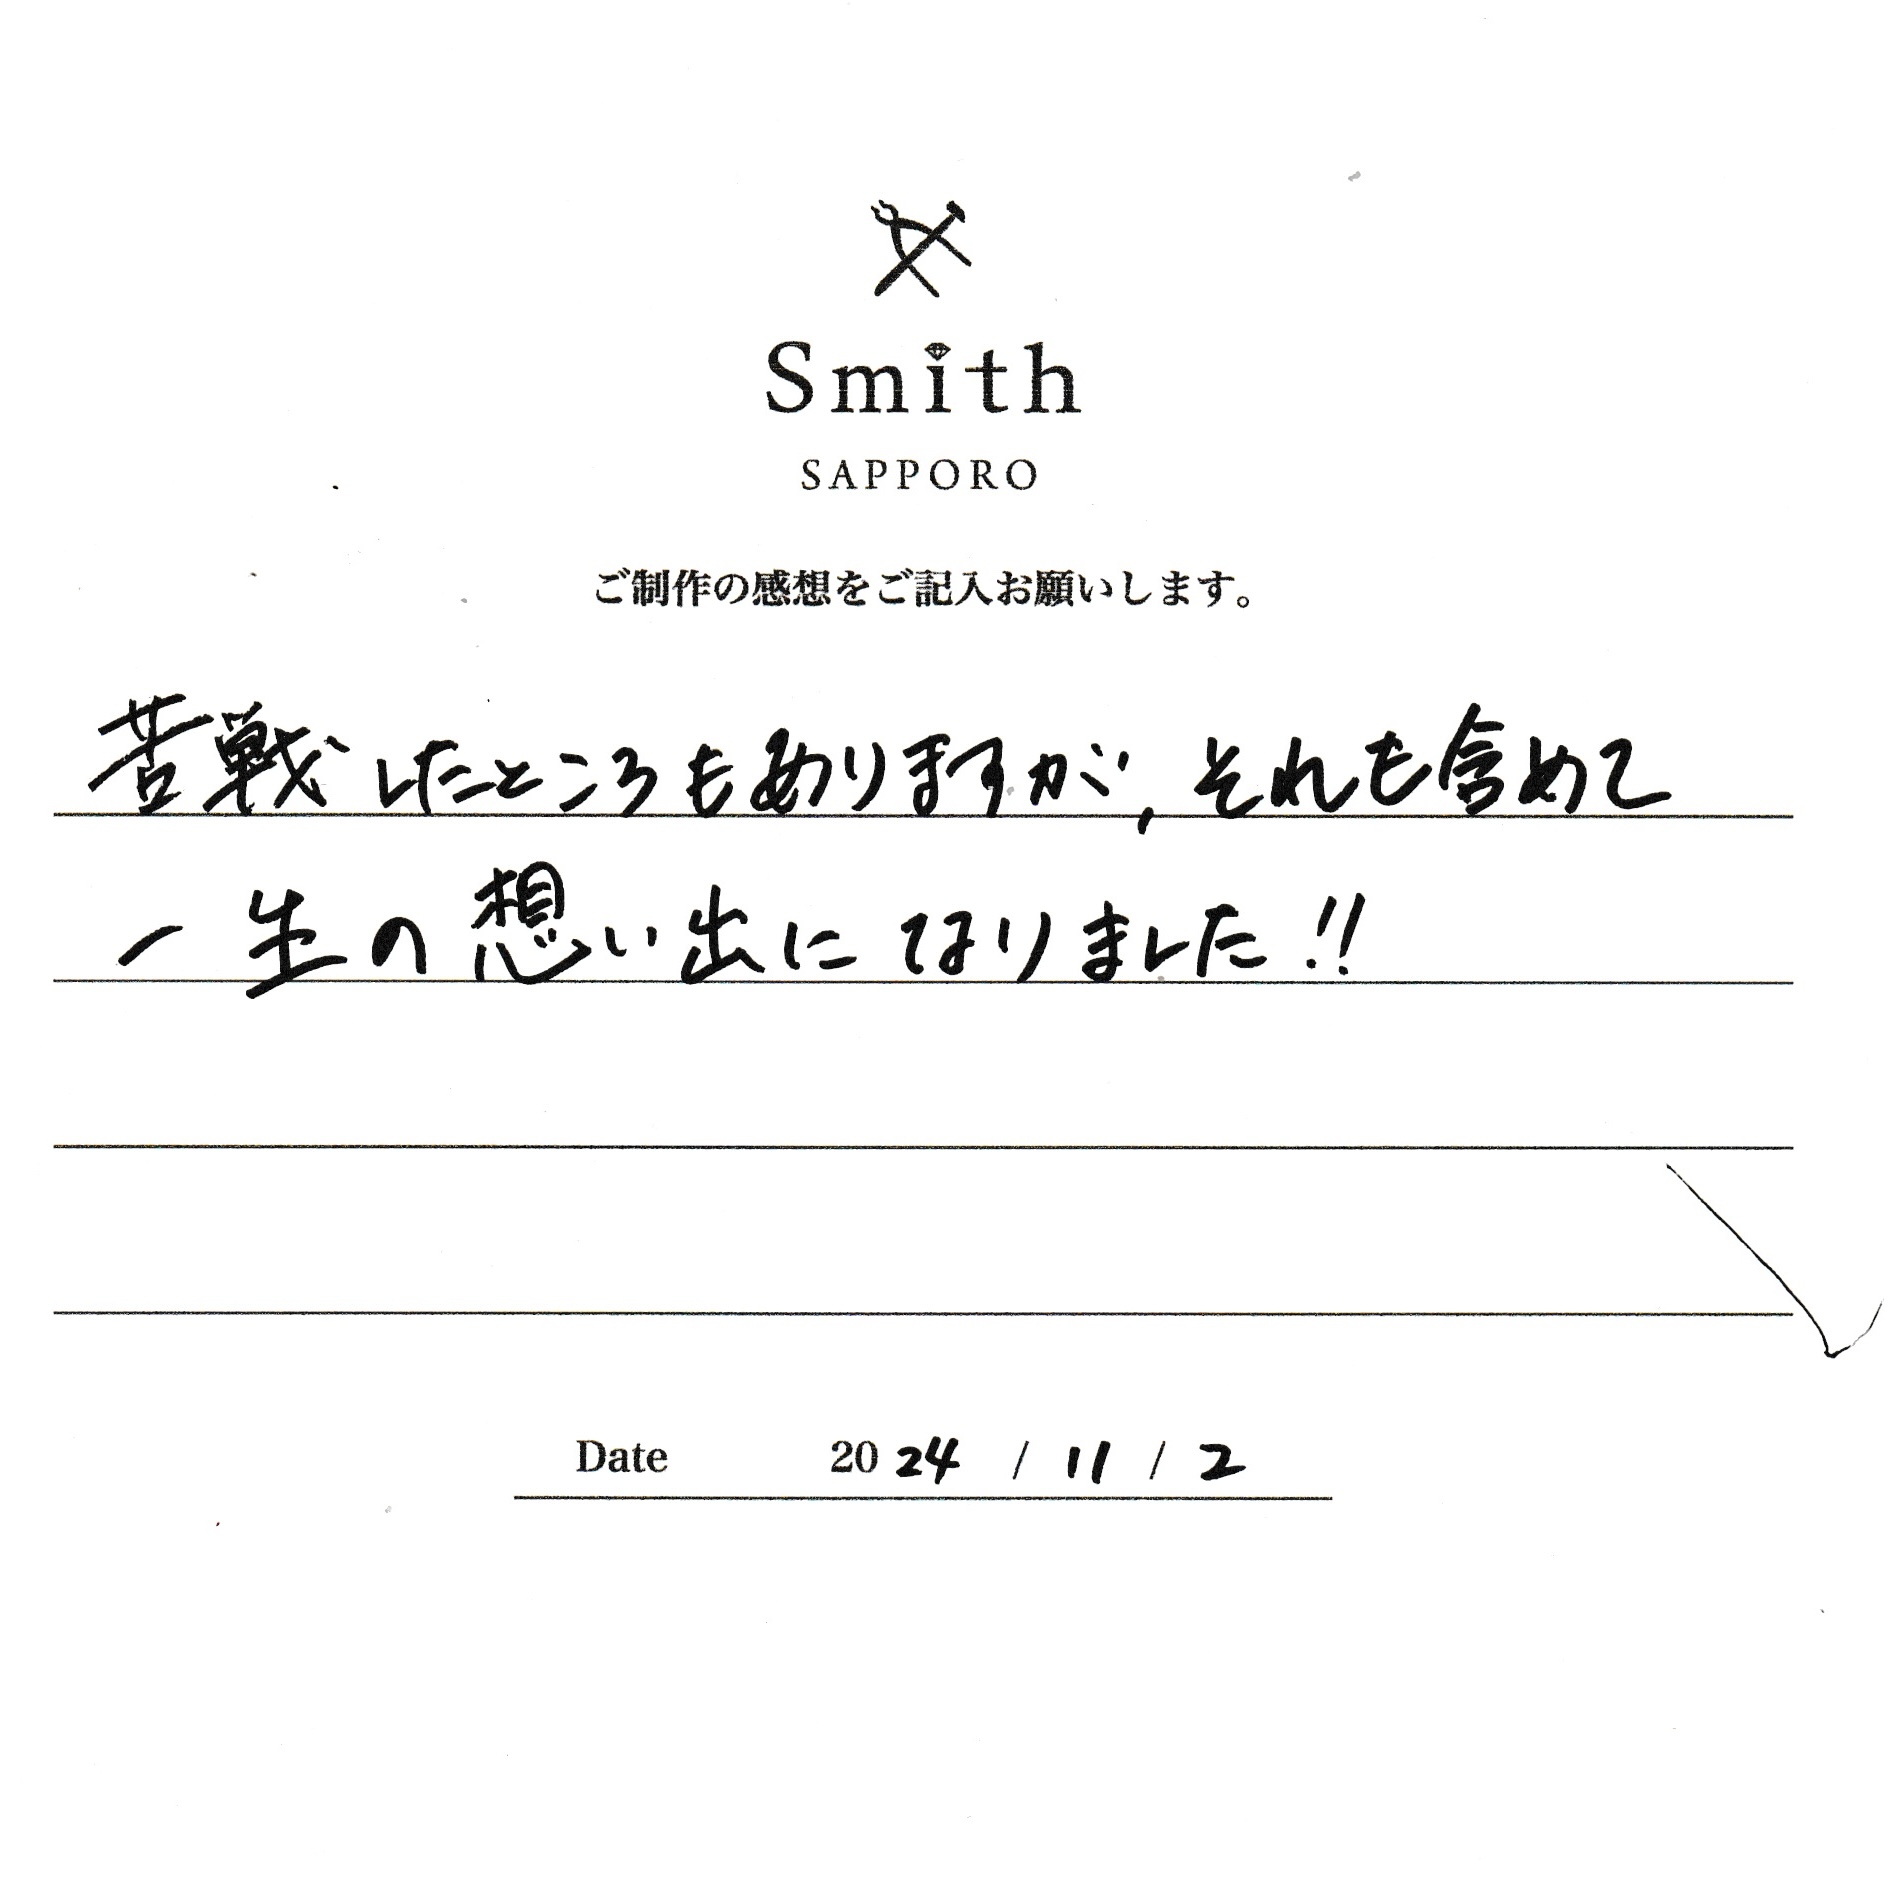 Smith
SAPPORO
ご制作の感想をご記入お願いします。
苦戦したところもありますが、それも含めて
一生の想い出になりました!!
Date 2024 / 11 / 2